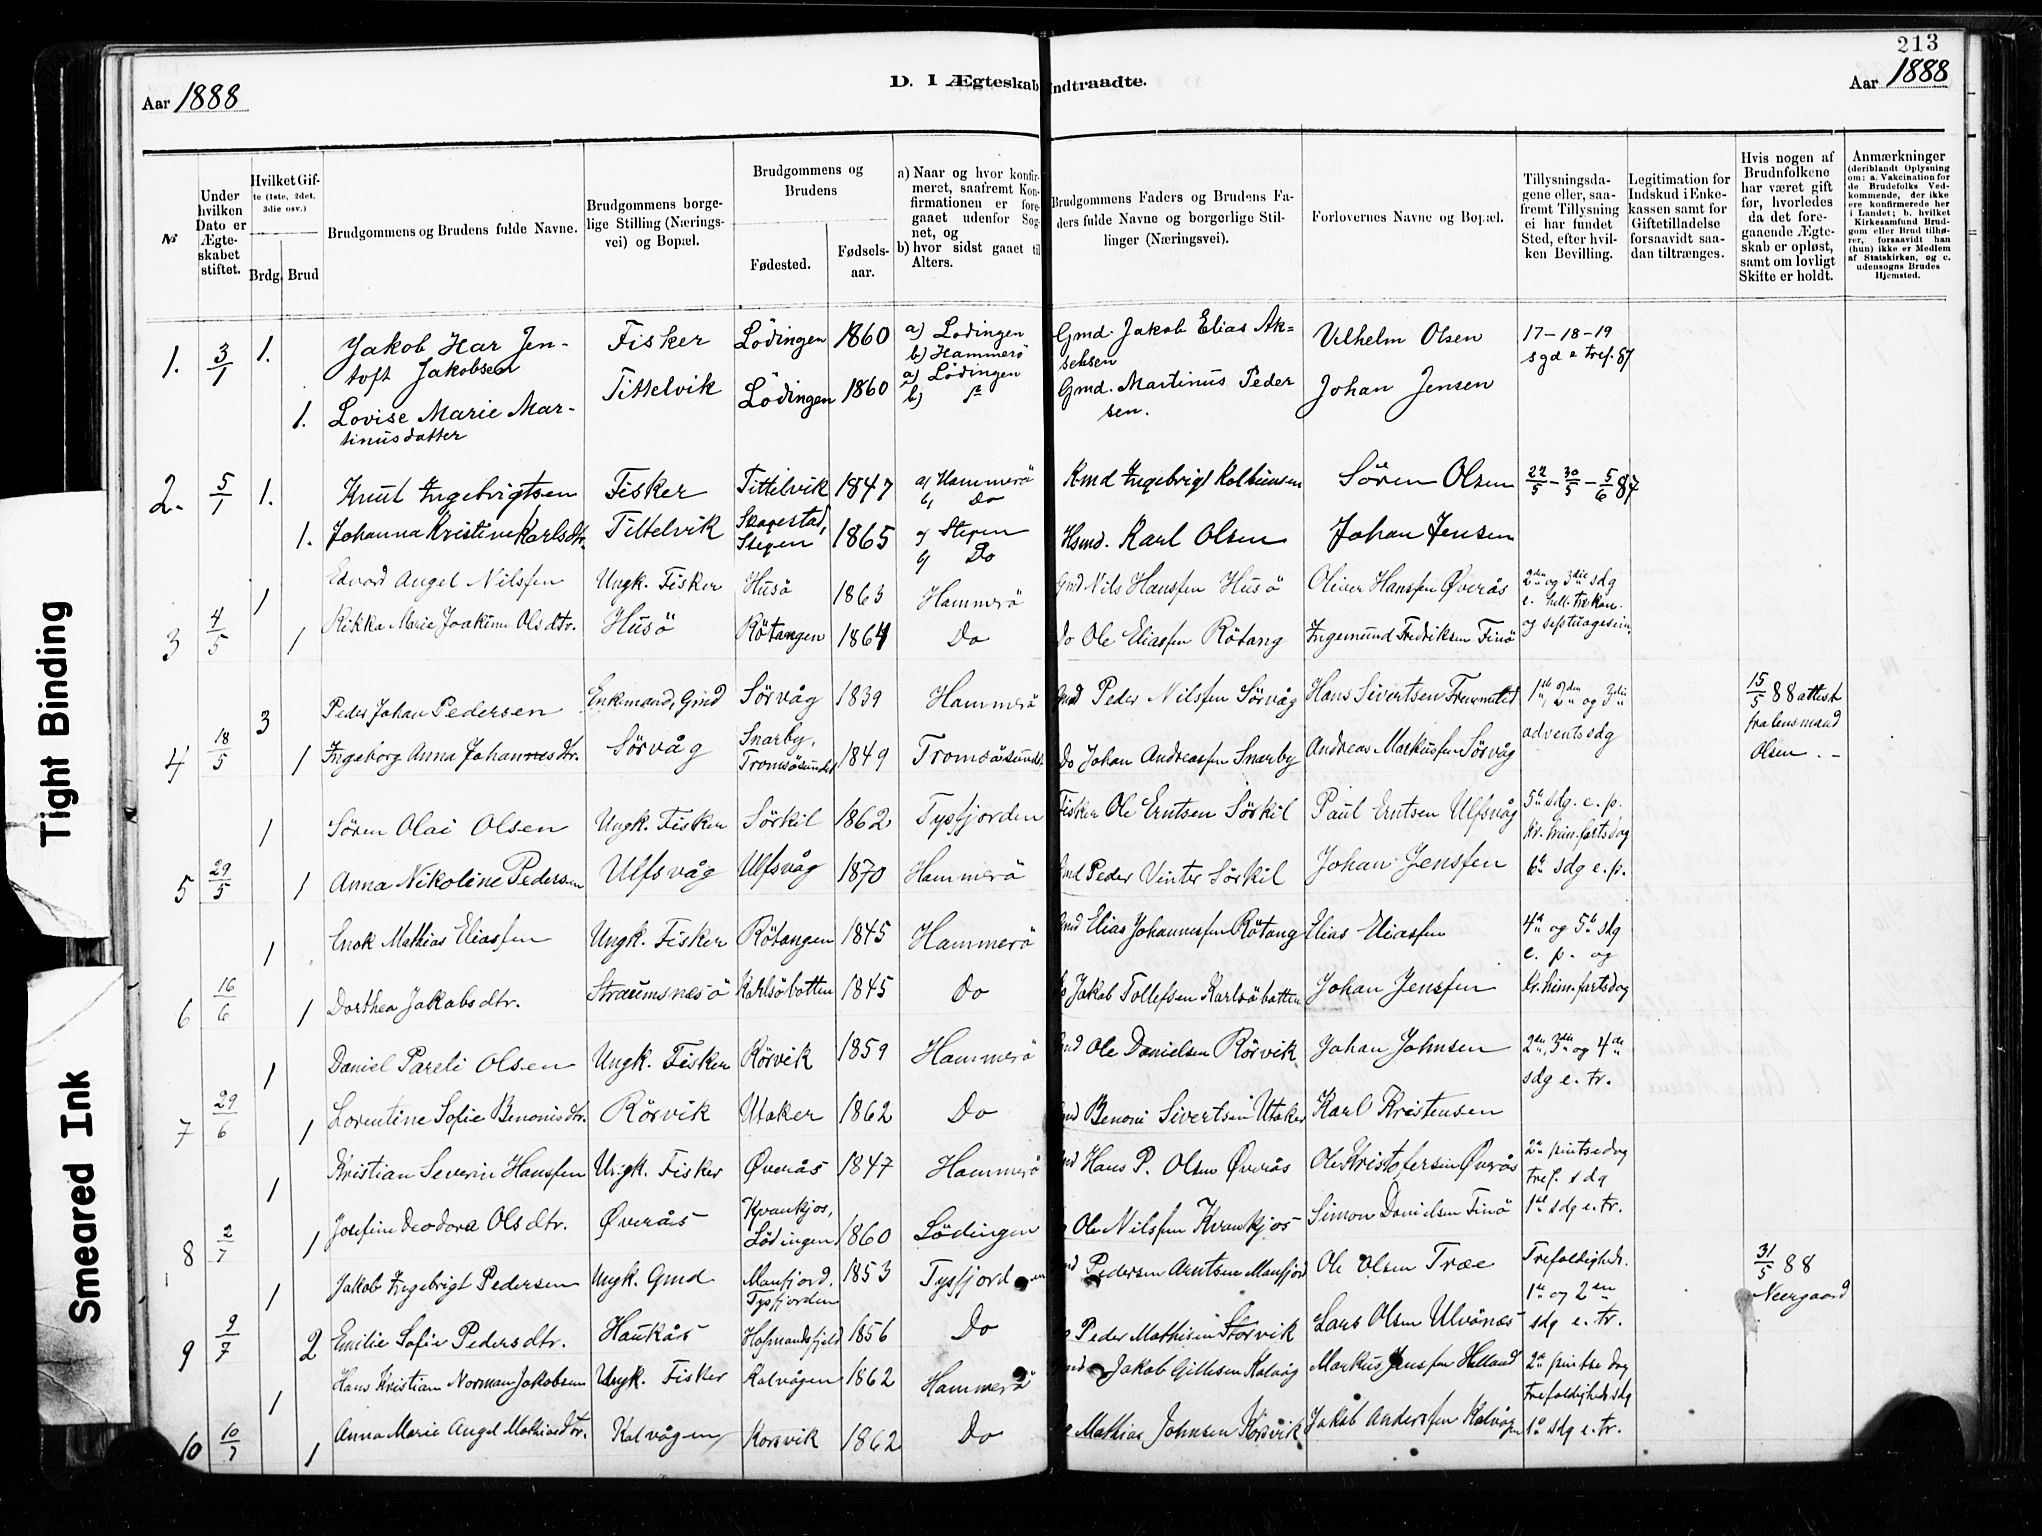 213
Aar 1888
D. I Ægteskab Indtraadte.
Aar 1888
№
Under hvilken Dato er Ægteskabet stiftet.
Hvilket Gifte (1ste, 2det, 3die osv.)
Brdg. Brud
Brudgommens og Brudens fulde Navne.
Brudgommens borgelige Stilling (Næringsvei) og Bopæl.
Brudgommens og Brudens
Fødested.
Fødselsaar.
a) Naar og hvor konfirmeret, saafremt Konfirmationen er foregaaet udenfor Sognet, og
b) hvor sidst gaaet til Alters.
Brudgommens Faders og Brudens Faders fulde Navne og borgerlige Stillinger (Næringsvei).
Forlovernes Navne og Bopæl.
Tillysningsdagene eller, saafremt Tillysning ei har fundet Sted, efter hvilken Bevilling.
Legitimation for Indskud i Enkekassen samt for Giftetilladelse forsaavidt saadan tiltrænges.
Hvis nogen af Brudnfolkene har været gift før, hvorledes da det foregaaende Ægteskab er opløst, samt om lovligt Skifte er holdt.
Anmærkninger (deriblandt Oplysning om: a. Vakcination for de Brudefolks Vedkommende, der ikke ere konfirmerede her i Landet; b. hvilket Kirkesamfund Brudgom eller Brud tilhører, forsaavidt han (hun) ikke er Medlem af Statskirken, og c. udensogns Brudes Hjemsted.
1. 3/1 1. Jakob Har Jentoft Jakobsen Fisker Lödingen 1860 a) Lodingen b) Hammerö Gmd. Jakob Elias Akselsen Vilhelm Olsen 17-18-19 sgd e tref. 87
1. Lovise Marie Martinusdatter Tittelvik Lödingen 1860 a) Lödingen b) Gmd. Martinus Pedersen. Johan Jensen
2. 5/1 1. Knut Ingebrigtsen Fisker Tittelvik 1847 a) Hammerö b) Do Ingebrigt Sören Olsen 22/5 - 30/5 - 5/6 87
1. Johanna Kristine Karlsdtr. Tittelvik Skagestad, Stegen 1865 a) Stegen b) Do Hsmd. Karl Olsen Johan Jensen
3 4/5 1 Edvard Angel Nilssen Ungk. Fisker Husö 1863 Hammerö Gmd Nils Hanssen Husö Oliver Hanssen Øverås 2den og 3die sdg
1 Rikka Marie Joakime Olsdtr. Husö Rötangen 1864 Do Do Ole Eliassen Rötang Ingemund Fredriksen Finö og septuagesim.
4 18/5 3 Peder Johan Pedersen Enkemand, Gmd Sörvåg 1839 Hammerö Gmd Peder Nilssen Sörvåg Hans Sivertsen 1ste, 2den og 3die adventssdg 15/5 88 attest fra lensmand Olsen. -
1 Ingeborg Anna Johannesdtr. Sörvåg Snarby, Tromsösundet 1849 Tromsösundet Do Johan Andreassen Snarby Andreas Markussen Sörvåg
5 29/5 1 Sören Olai Olsen Ungk. Fisker Sörkil 1862 Tysfjorden Fisker Ole Erntsen Sörkil Paul Erntsen Ulfsvåg 5te sdg. e. p. Kr. himfartsdag
1 Anna Nikoline Pedersen Ulfsvåg Ulfsvåg 1870 Hammerö Gmd Peder Vinter Sörkil Johan Jenssen 6te sdg e. p.
6 16/6 1 Enok Mathias Eliassen Ungk. Fisker Rötangen 1845 Hammerö Gmd Elias Johannessen Rötang Elias Eliassen 4de og 5te sdg e. p. og
1 Dorthea Jakobsdtr. Straumsnesö Karlsöbotten 1845 Do Do Jakob Tollefsen Karlsöbotten Johan Jenssen kr. himfartsdag
7 29/6 1 Daniel Pareli Olsen Ungk. Fisker Rörvik 1859 Hammerö Gmd Ole Danielsen Rörvik Johan Johnsen 2den, 3die og 4de sdg e. tr.
1 Lorentine Sofie Benonisdtr. Rörvik Utaker 1862 Do Gmd Benoni Sivertsen Utaker Karl Kristensen
8 2/7 1 Kristian Severin Hanssen Ungk. Fisker Øverås 1847 Hammerö Gmd Hans P. Olsen Øverås Ole Kristofersen Øverås 2den pintsedag tref. sdg
1 Josefine Deodora Olsdtr. Øverås Kvankjos, Lödingen 1860 Lödingen Ole Nilssen Kvankjos Simon Danielsen Finö 1ste sdg e. tr.
9 9/7 1 Jakob Ingebrigt Pedersen Ungk. Gmd Manfjord, Tysfjorden 1853 Tysfjorden Gmd Pedersen Arntsen Manfjord Ole Olsen Træe Trefoldigheds. 1ste og 2den 31/5 88 Neergaard
2 Emilie Sofie Pedersdtr. Haukås 1856 Do Peder Mathisen Storvik Lars Olsen Ulvönæs sdg e. tr.
10 10/7 1 Hans Kristian Norman Jakobsen Ungk. Fisker Kalvågen 1862 Hammerö Gmd Jakob Gillesen Kalvåg Markus Jenssen Helland 2den pintsedag trefoldigheds sdg
1 Anna Marie Angel Mathiasdtr. Kalvågen Korsvik 1862 Do Mathias Johnsen Korsvik Jakob Anderssen Kalvågen 1ste sdg e. tr.
Tight Binding
Smeared Ink